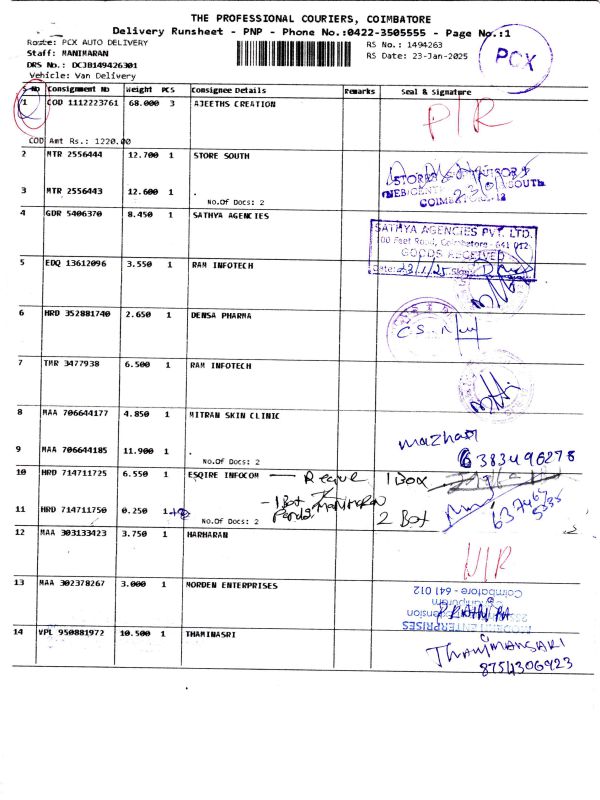 THE PROFESSIONAL COURIERS, COIMBATORE
Delivery Runsheet - PNP - Phone No.:0422-3505555 - Page No.:1
Route: PCX AUTO DELIVERY
RS No.: 1494263
Staff: MANIMARAN
RS Date: 23-Jan-2025
DRS No.: DCJB149426301
Vehicle: Van Delivery
PCX
S No Consignment No Weight PCS Consignee Details Remarks Seal & Signature
1 COD 1112223761 68.000 3 AJEETHS CREATION
COD Amt Rs.: 1220.00
2 MTR 2556444 12.700 1 STORE SOUTH
3 MTR 2556443 12.600 1 .
No.Of Docs: 2
4 GDR 5406370 8.450 1 SATHYA AGENCIES
SATHYA AGENCIES PVT. LTD.
100 Feet Road, Coimbatore - 641 012
GOODS RECEIVED
Date: 23/1/25 Sign:
5 EDQ 13612096 3.550 1 RAM INFOTECH
6 HRD 352881740 2.650 1 DENSA PHARMA
7 TMR 3477938 6.500 1 RAM INFOTECH
8 MAA 706644177 4.850 1 MITRAN SKIN CLINIC
9 MAA 706644185 11.900 1 .
No.Of Docs: 2
6383496278
10 HRD 714711725 6.550 1 ESQIRE INFOCOM 1 Box
11 HRD 714711750 0.250 1 .
No.Of Docs: 2
12 MAA 303133423 3.750 1 HARHARAN
13 MAA 302378267 3.000 1 MORDEN ENTERPRISES
Coimbatore - 641 012
MODERN ENTERPRISES
14 VPL 950881972 10.500 1 THAMINASRI
8754306923